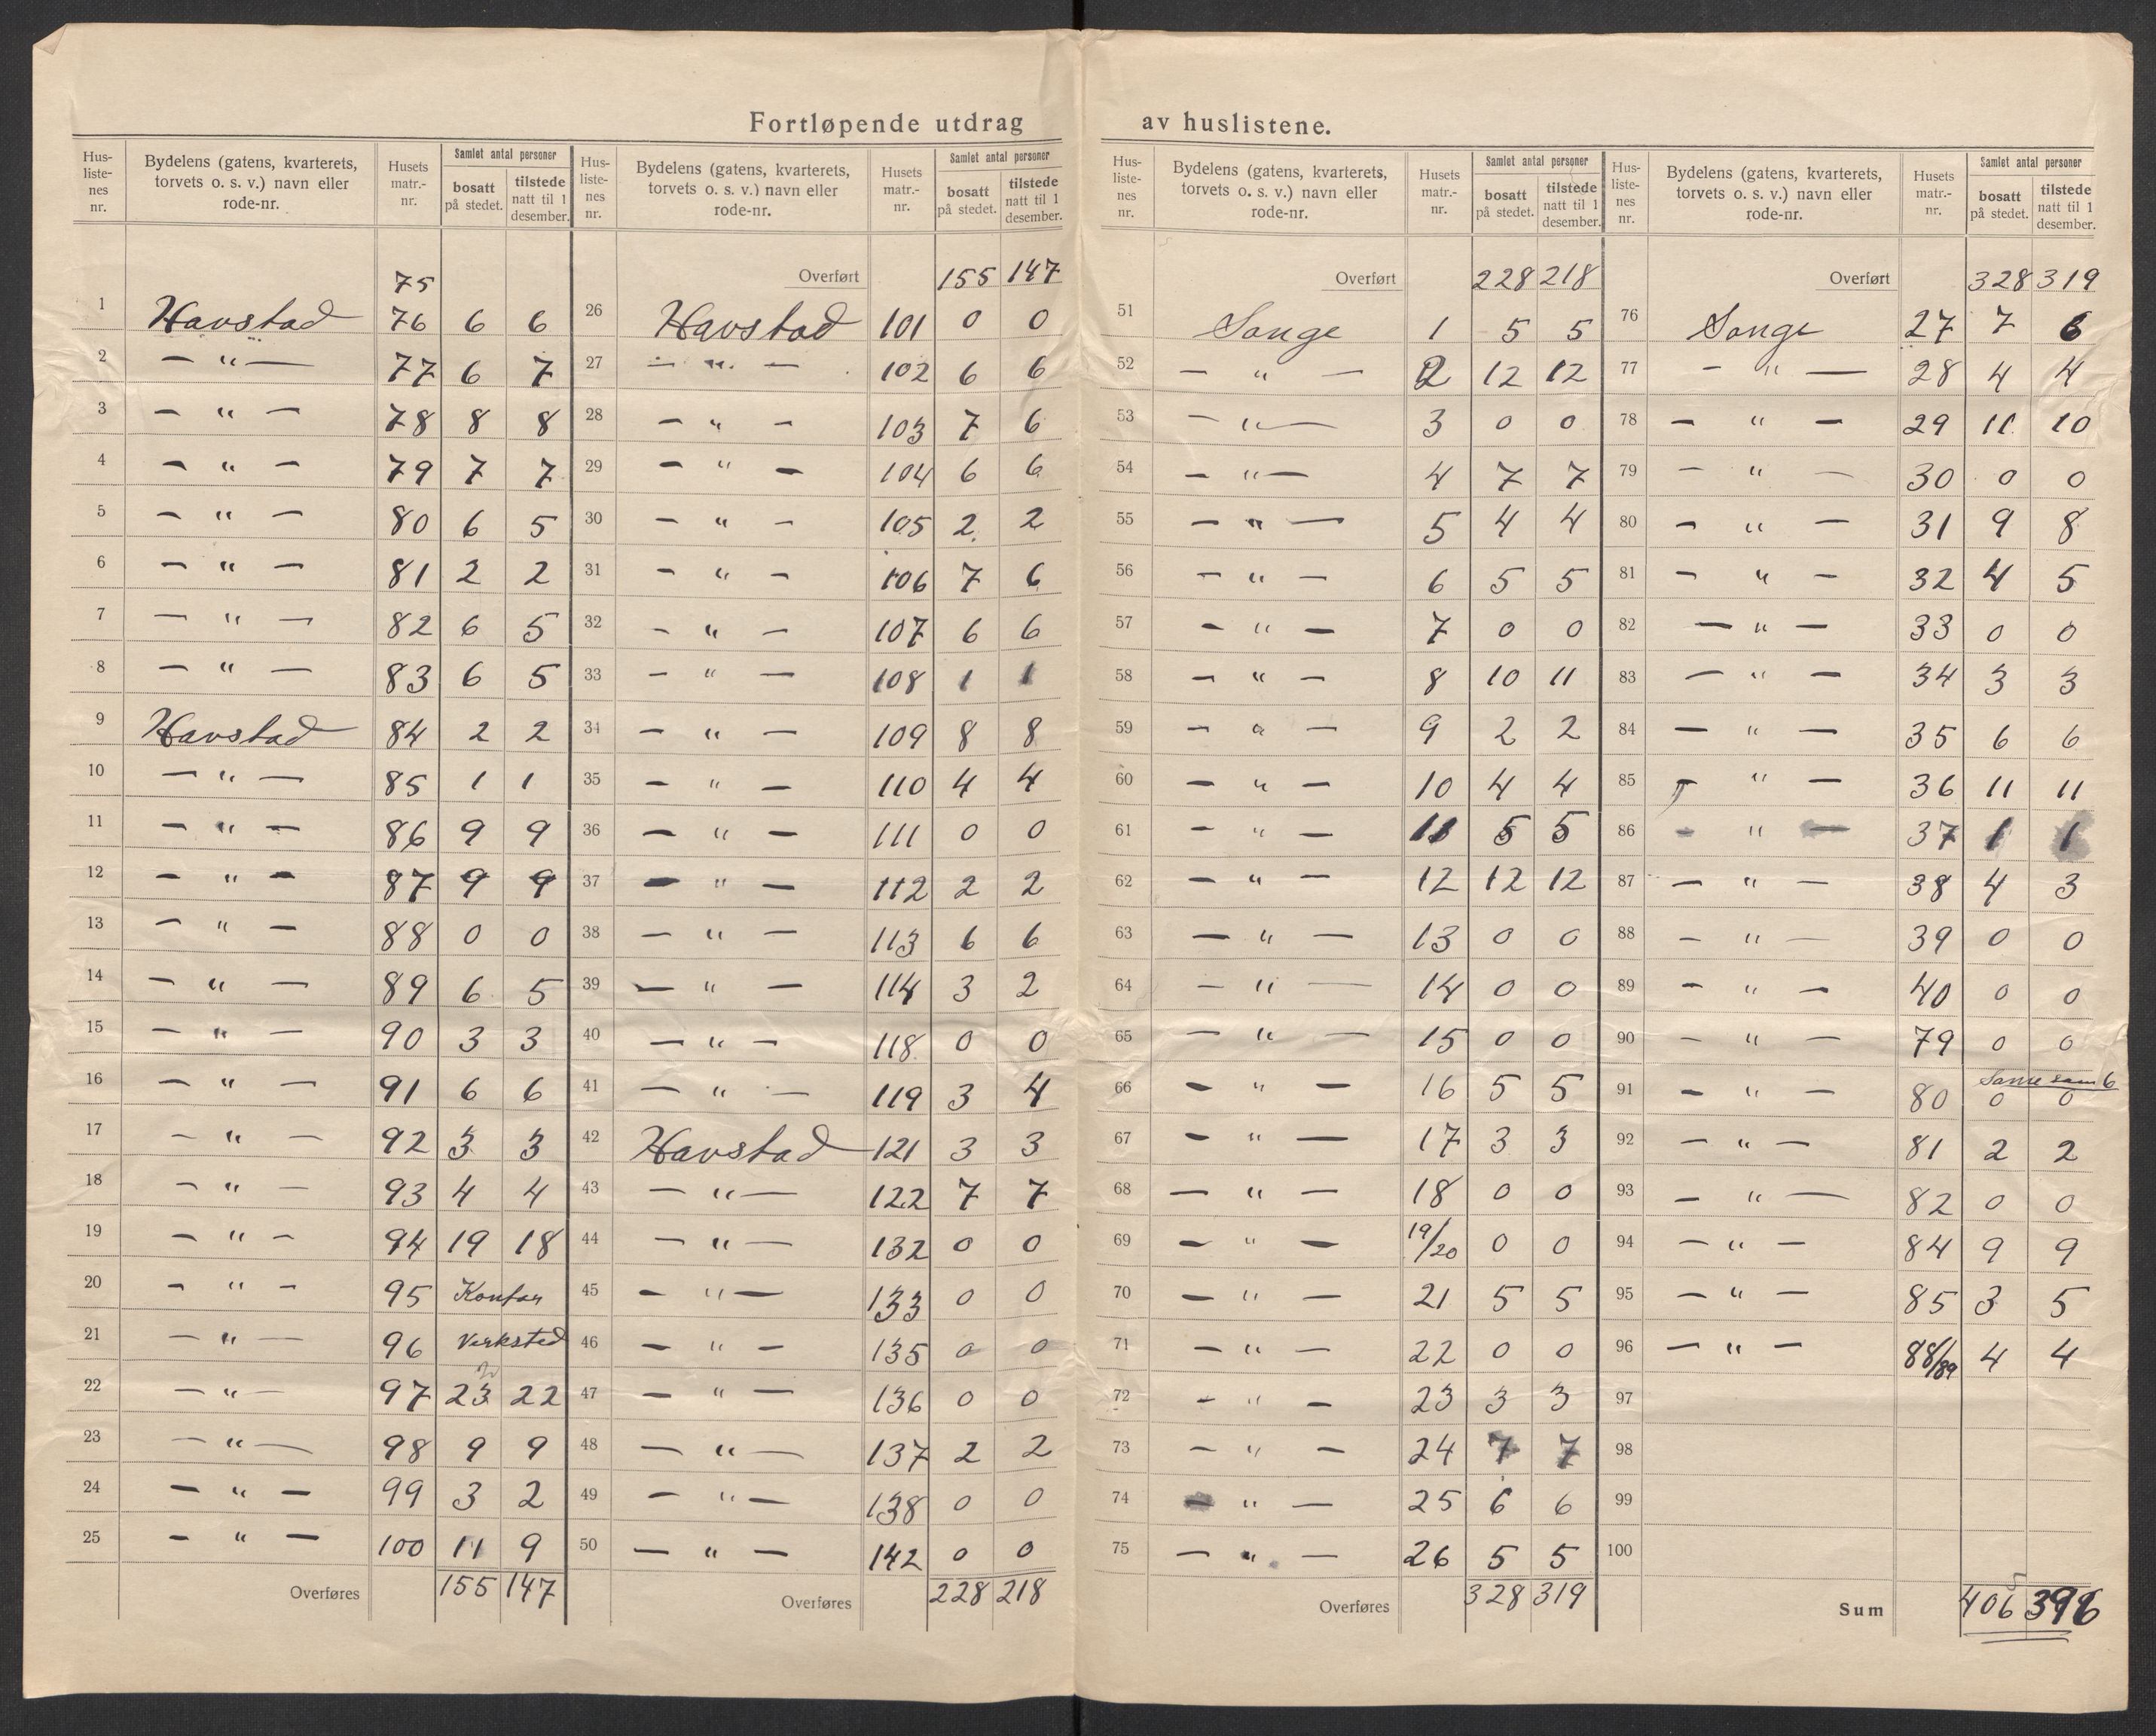 Fortløpende utdrag av huslistene.
Hus-listenes nr. | Bydelens (gatens, kvarterets, torvets o. s. v.) navn eller rode-nr. | Husets matr.-nr. | Samlet antal personer bosatt på stedet. | tilstede natt til 1 desember.
75
1 Havstad 76 6 6
2 — " — 77 6 7
3 — " — 78 8 8
4 — " — 79 7 7
5 — " — 80 6 5
6 — " — 81 2 2
7 — " — 82 6 5
8 — " — 83 6 5
9 Havstad 84 2 2
10 — " — 85 1 1
11 — " — 86 9 9
12 — " — 87 9 9
13 — " — 88 0 0
14 — " — 89 6 5
15 — " — 90 3 3
16 — " — 91 6 6
17 — " — 92 3 3
18 — " — 93 4 4
19 — " — 94 19 18
20 — " — 95 Kontor
21 — " — 96 Verksted
22 — " — 97 23 22
23 — " — 98 9 9
24 — " — 99 3 2
25 — " — 100 11 9
Overføres 155 147
Hus-listenes nr. | Bydelens (gatens, kvarterets, torvets o. s. v.) navn eller rode-nr. | Husets matr.-nr. | Samlet antal personer bosatt på stedet. | tilstede natt til 1 desember.
Overført 155 147
26 Havstad 101 0 0
27 — " — 102 6 6
28 — " — 103 7 6
29 — " — 104 6 6
30 — " — 105 2 2
31 — " — 106 7 6
32 — " — 107 6 6
33 — " — 108 1 1
34 — " — 109 8 8
35 — " — 110 4 4
36 — " — 111 0 0
37 — " — 112 2 2
38 — " — 113 6 6
39 — " — 114 3 2
40 — " — 118 0 0
41 — " — 119 3 4
42 Havstad 121 3 3
43 — " — 122 7 7
44 — " — 132 0 0
45 — " — 133 0 0
46 — " — 135 0 0
47 — " — 136 0 0
48 — " — 137 2 2
49 — " — 138 0 0
50 — " — 142 0 0
Overføres 228 218
Hus-listenes nr. | Bydelens (gatens, kvarterets, torvets o. s. v.) navn eller rode-nr. | Husets matr.-nr. | Samlet antal personer bosatt på stedet. | tilstede natt til 1 desember.
Overført 228 218
51 Songe 1 5 5
52 — " — 2 12 12
53 — " — 3 0 0
54 — " — 4 7 7
55 — " — 5 4 4
56 — " — 6 5 5
57 — " — 7 0 0
58 — " — 8 10 11
59 — " — 9 2 2
60 — " — 10 4 4
61 — " — 11 5 5
62 — " — 12 12 12
63 — " — 13 0 0
64 — " — 14 0 0
65 — " — 15 0 0
66 — " — 16 5 5
67 — " — 17 3 3
68 — " — 18 0 0
69 — " — 19/20 0 0
70 — " — 21 5 5
71 — " — 22 0 0
72 — " — 23 3 3
73 — " — 24 7 7
74 — " — 25 6 6
75 — " — 26 5 5
Overføres 328 319
Hus-listenes nr. | Bydelens (gatens, kvarterets, torvets o. s. v.) navn eller rode-nr. | Husets matr.-nr. | Samlet antal personer bosatt på stedet. | tilstede natt til 1 desember.
Overført 328 319
76 Songe 27 7 6
77 — " — 28 4 4
78 — " — 29 11 10
79 — " — 30 0 0
80 — " — 31 9 8
81 — " — 32 4 5
82 — " — 33 0 0
83 — " — 34 3 3
84 — " — 35 6 6
85 — " — 36 11 11
86 — " — 37 1 1
87 — " — 38 4 3
88 — " — 39 0 0
89 — " — 40 0 0
90 — " — 79 0 0
Same som 6
91 — " — 80 0 0
92 — " — 81 2 2
93 — " — 82 0 0
94 — " — 84 9 9
95 — " — 85 3 5
96 — " — 88/89 4 4
97
98
99
100
Sum 406 396